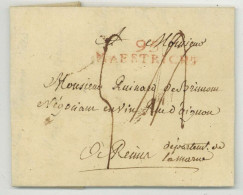 A Monsieur
95
MAESTRICHT
Monsieur Ruinart de Brimont
Négociant en vin, Rue
de Reims
département de
la marne